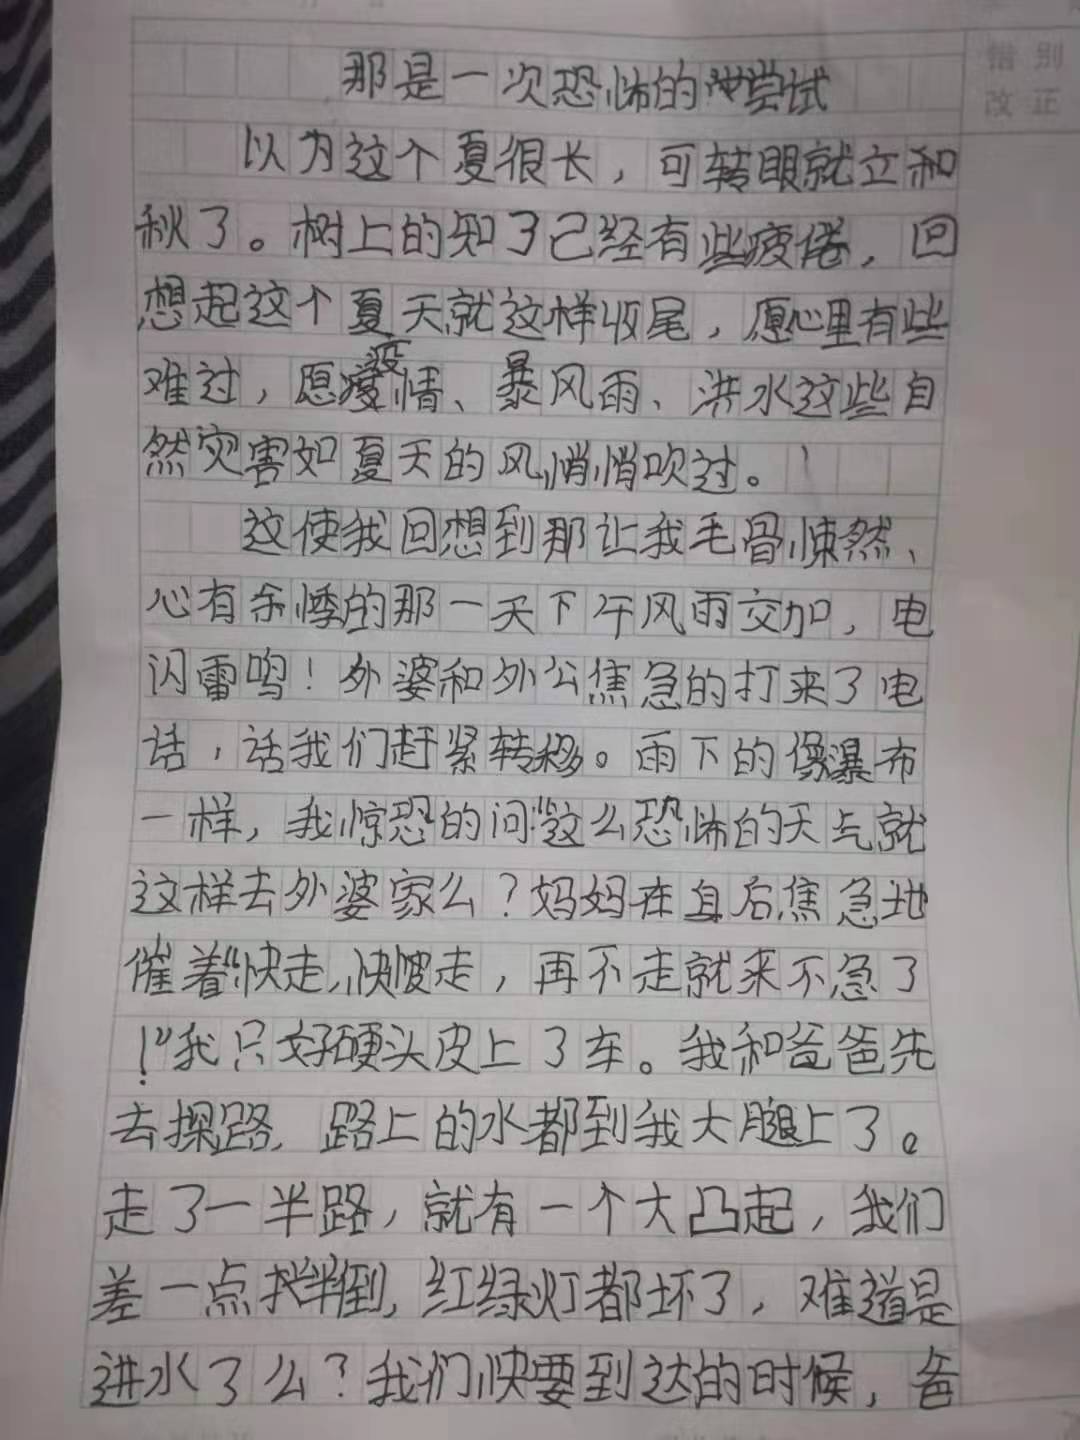 错别
改正
那是一次恐怖的尝试
以为这个夏很长，可转眼就立和
秋了。树上的知了已经有些疲倦，回
想起这个夏天就这样收尾，愿心里有些
难过，愿疫情、暴风雨、洪水这些自
然灾害如夏天的风悄悄吹过。
这使我回想到那让我毛骨悚然、
心有余悸的那一天下午风雨交加，电
闪雷鸣！外婆和外公焦急的打来了电
话，话我们赶紧转移。雨下的像瀑布
一样，我惊恐的问“这么恐怖的天气就
这样去外婆家么？妈妈在身后焦急地
催着“快走，快走，再不走就来不急了
！”我只好硬头皮上了车。我和爸爸先
去探路，路上的水都到我大腿上了。
走了一半路，就有一个大凸起，我们
差一点拌倒，红绿灯都坏了，难道是
进水了么？我们快要到达的时候，爸